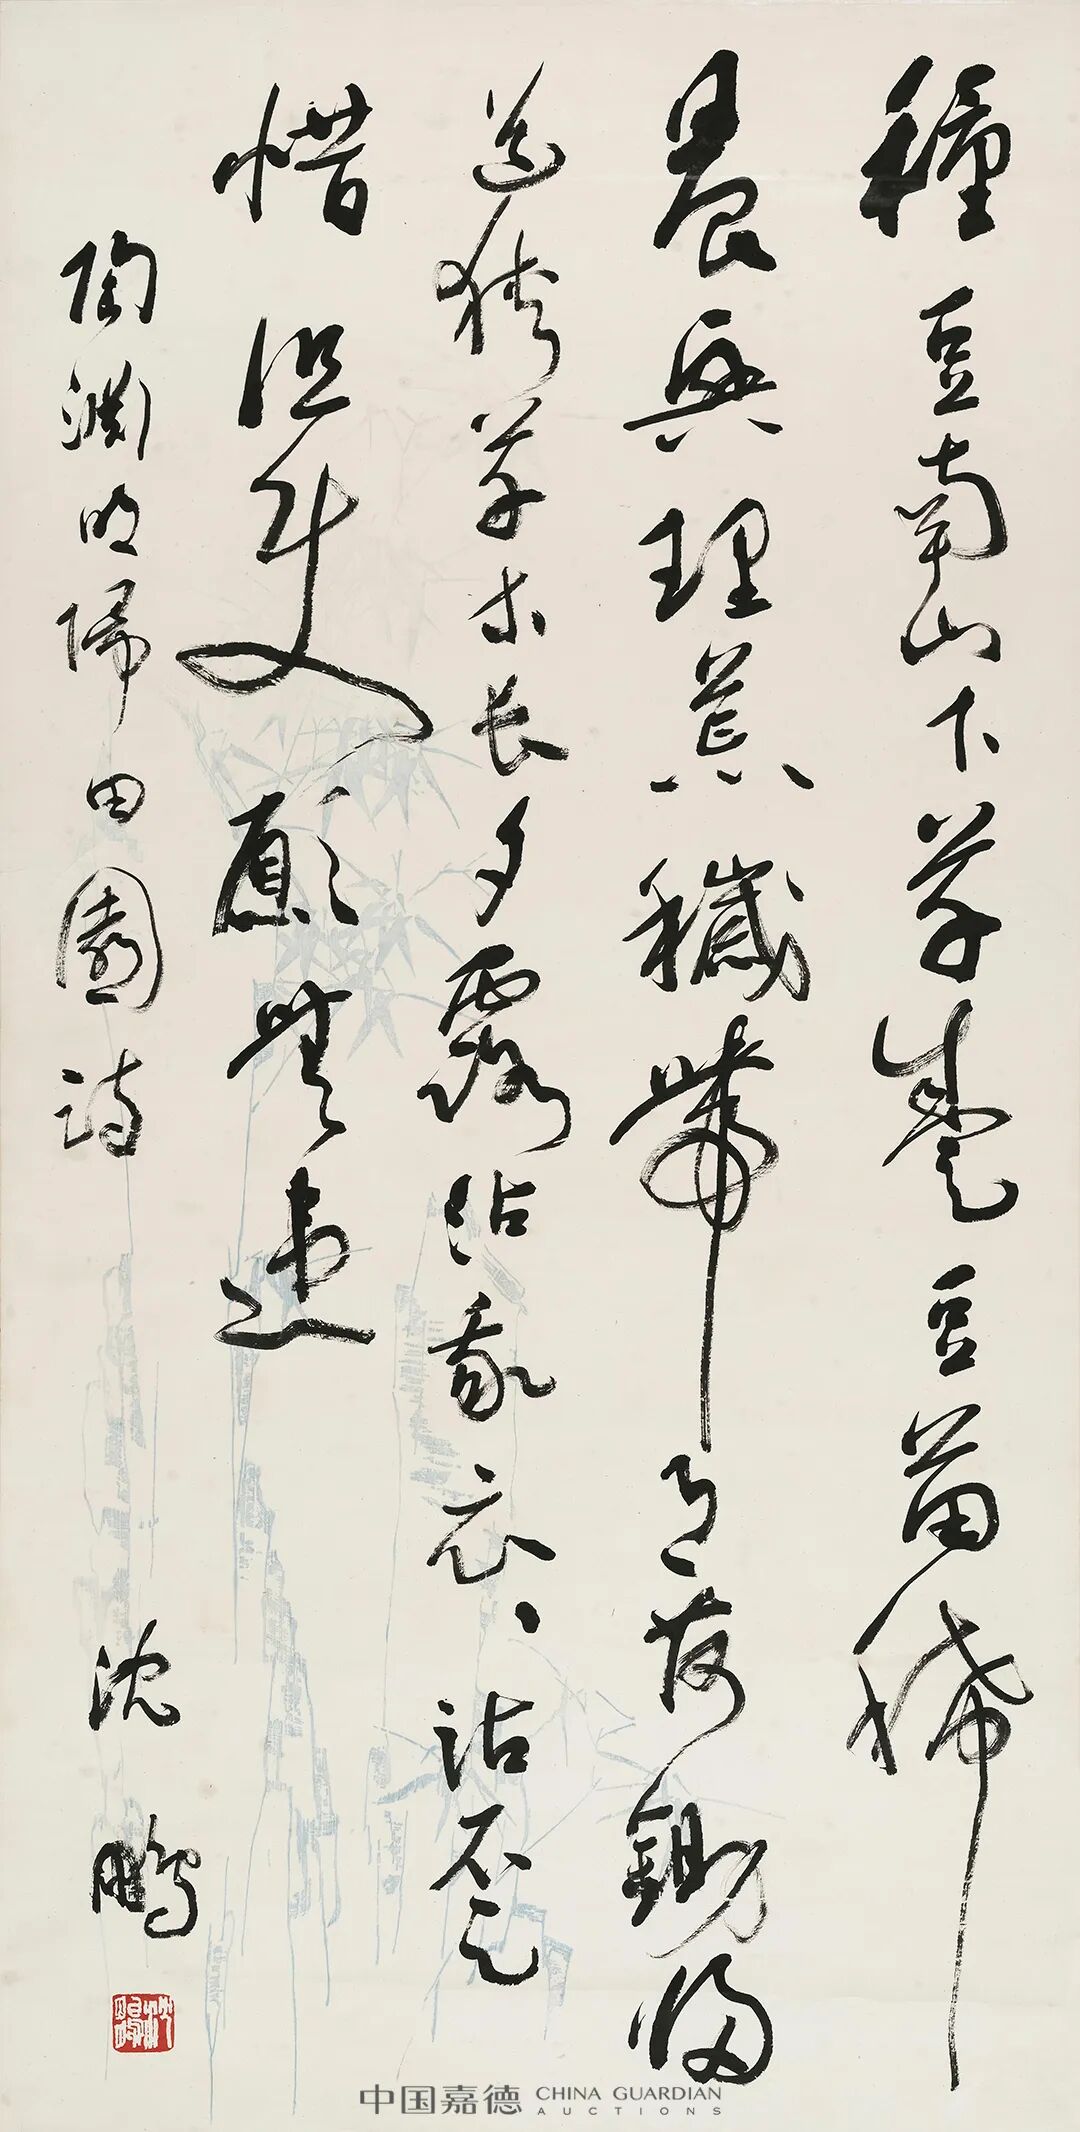 種豆南山下草盛豆苗稀
晨興理荒穢帶月荷鋤歸
道狹草木長夕露沾我衣、沾不足
惜但使願無違
陶淵明歸田園詩
沈鵬
中国嘉德 CHINA GUARDIAN
AUCTIONS